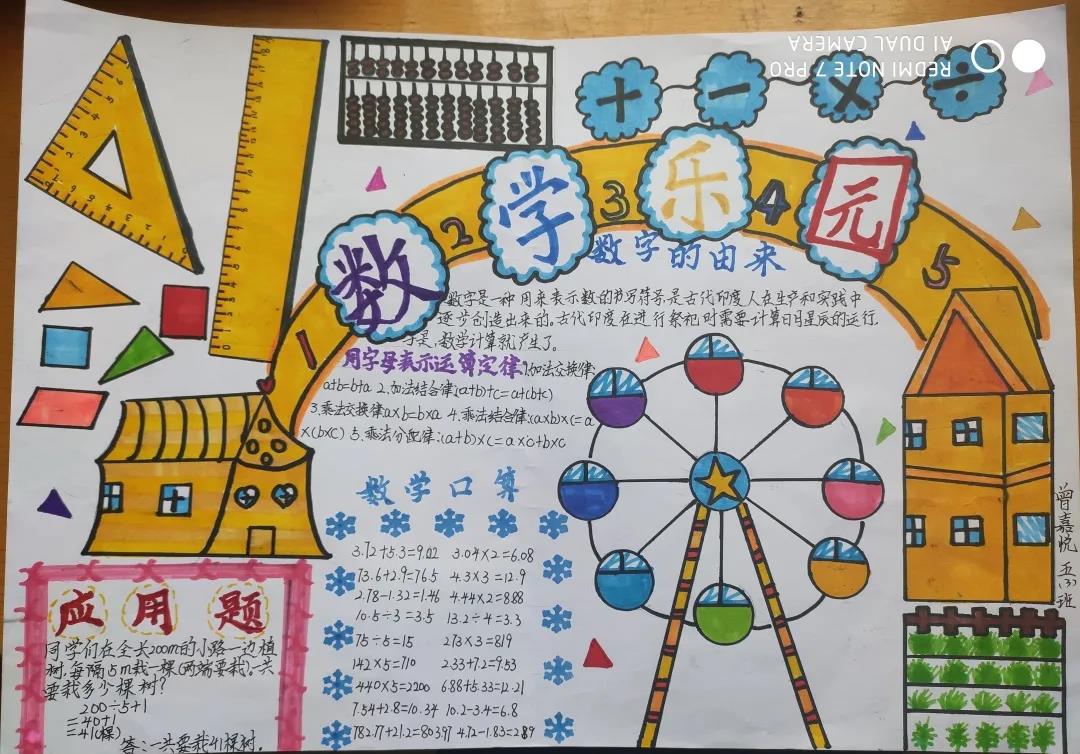 REDMI NOTE 7 PRO
AI DUAL CAMERA
+ - × ÷
数学乐园
1 2 3 4 5
数字的由来
数字是一种用来表示数的书写符号是古代印度人在生产和实践中
逐步创造出来的。古代印度在进行祭祀时需要计算日月星辰的运行,
于是,数学计算就产生了。
用字母表示运算定律 1.加法交换律:
a+b=b+a 2.加法结合律:(a+b)+c=a+(b+c)
3.乘法交换律a×b=b×a 4.乘法结合律:(a×b)×c=a
×(b×c) 5.乘法分配律:(a+b)×c=a×c+b×c
数学口算
3.72+5.3=9.02 3.04×2=6.08
73.6+2.9=76.5 4.3×3=12.9
2.78-1.32=1.46 4.44×2=8.88
10.5÷3=3.5 13.2÷4=3.3
75÷5=15 273×3=819
142×5=710 2.33+7.2=9.53
440×5=2200 6.88+5.33=12.21
7.54+2.8=10.34 10.2-3.4=6.8
782.77+21.2=803.97 4.72-1.83=2.89
应用题
同学们在全长200m的小路一边植
树,每隔5m栽一棵(两端要栽)。一共
要栽多少棵树?
200÷5+1
=40+1
=41(棵)
答:一共要栽41棵树.
曾嘉悦 五(3)班